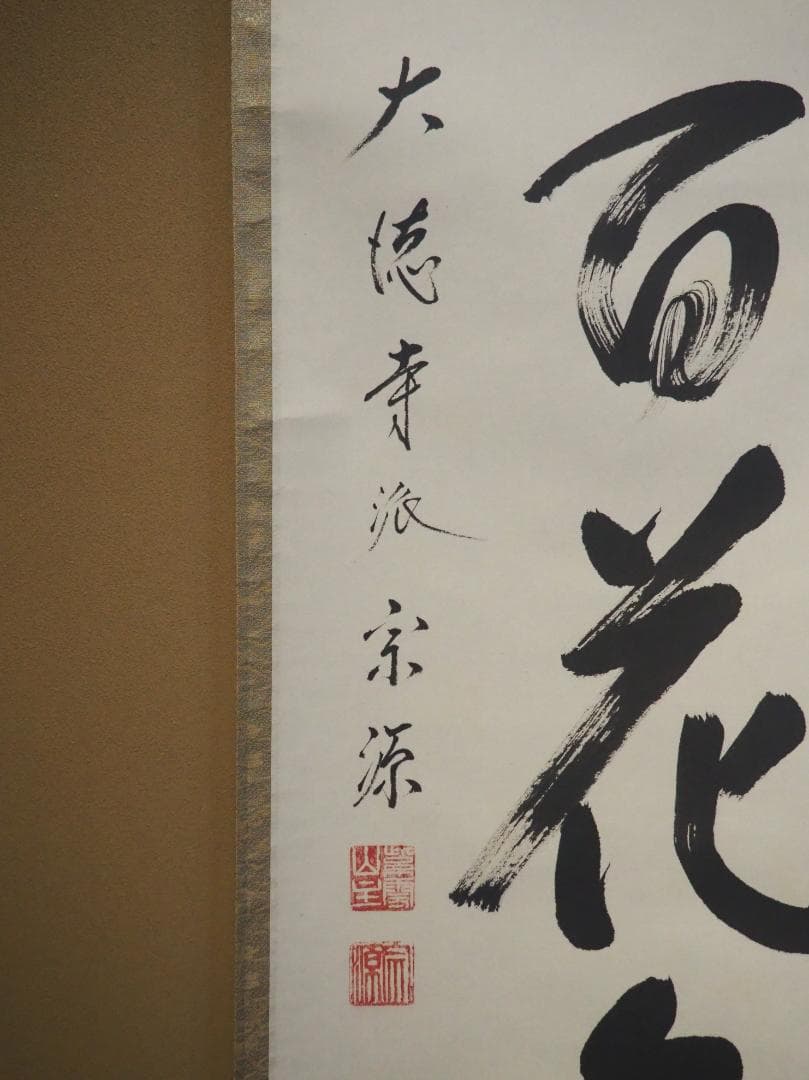 百花
大徳寺派 宗源
宗源